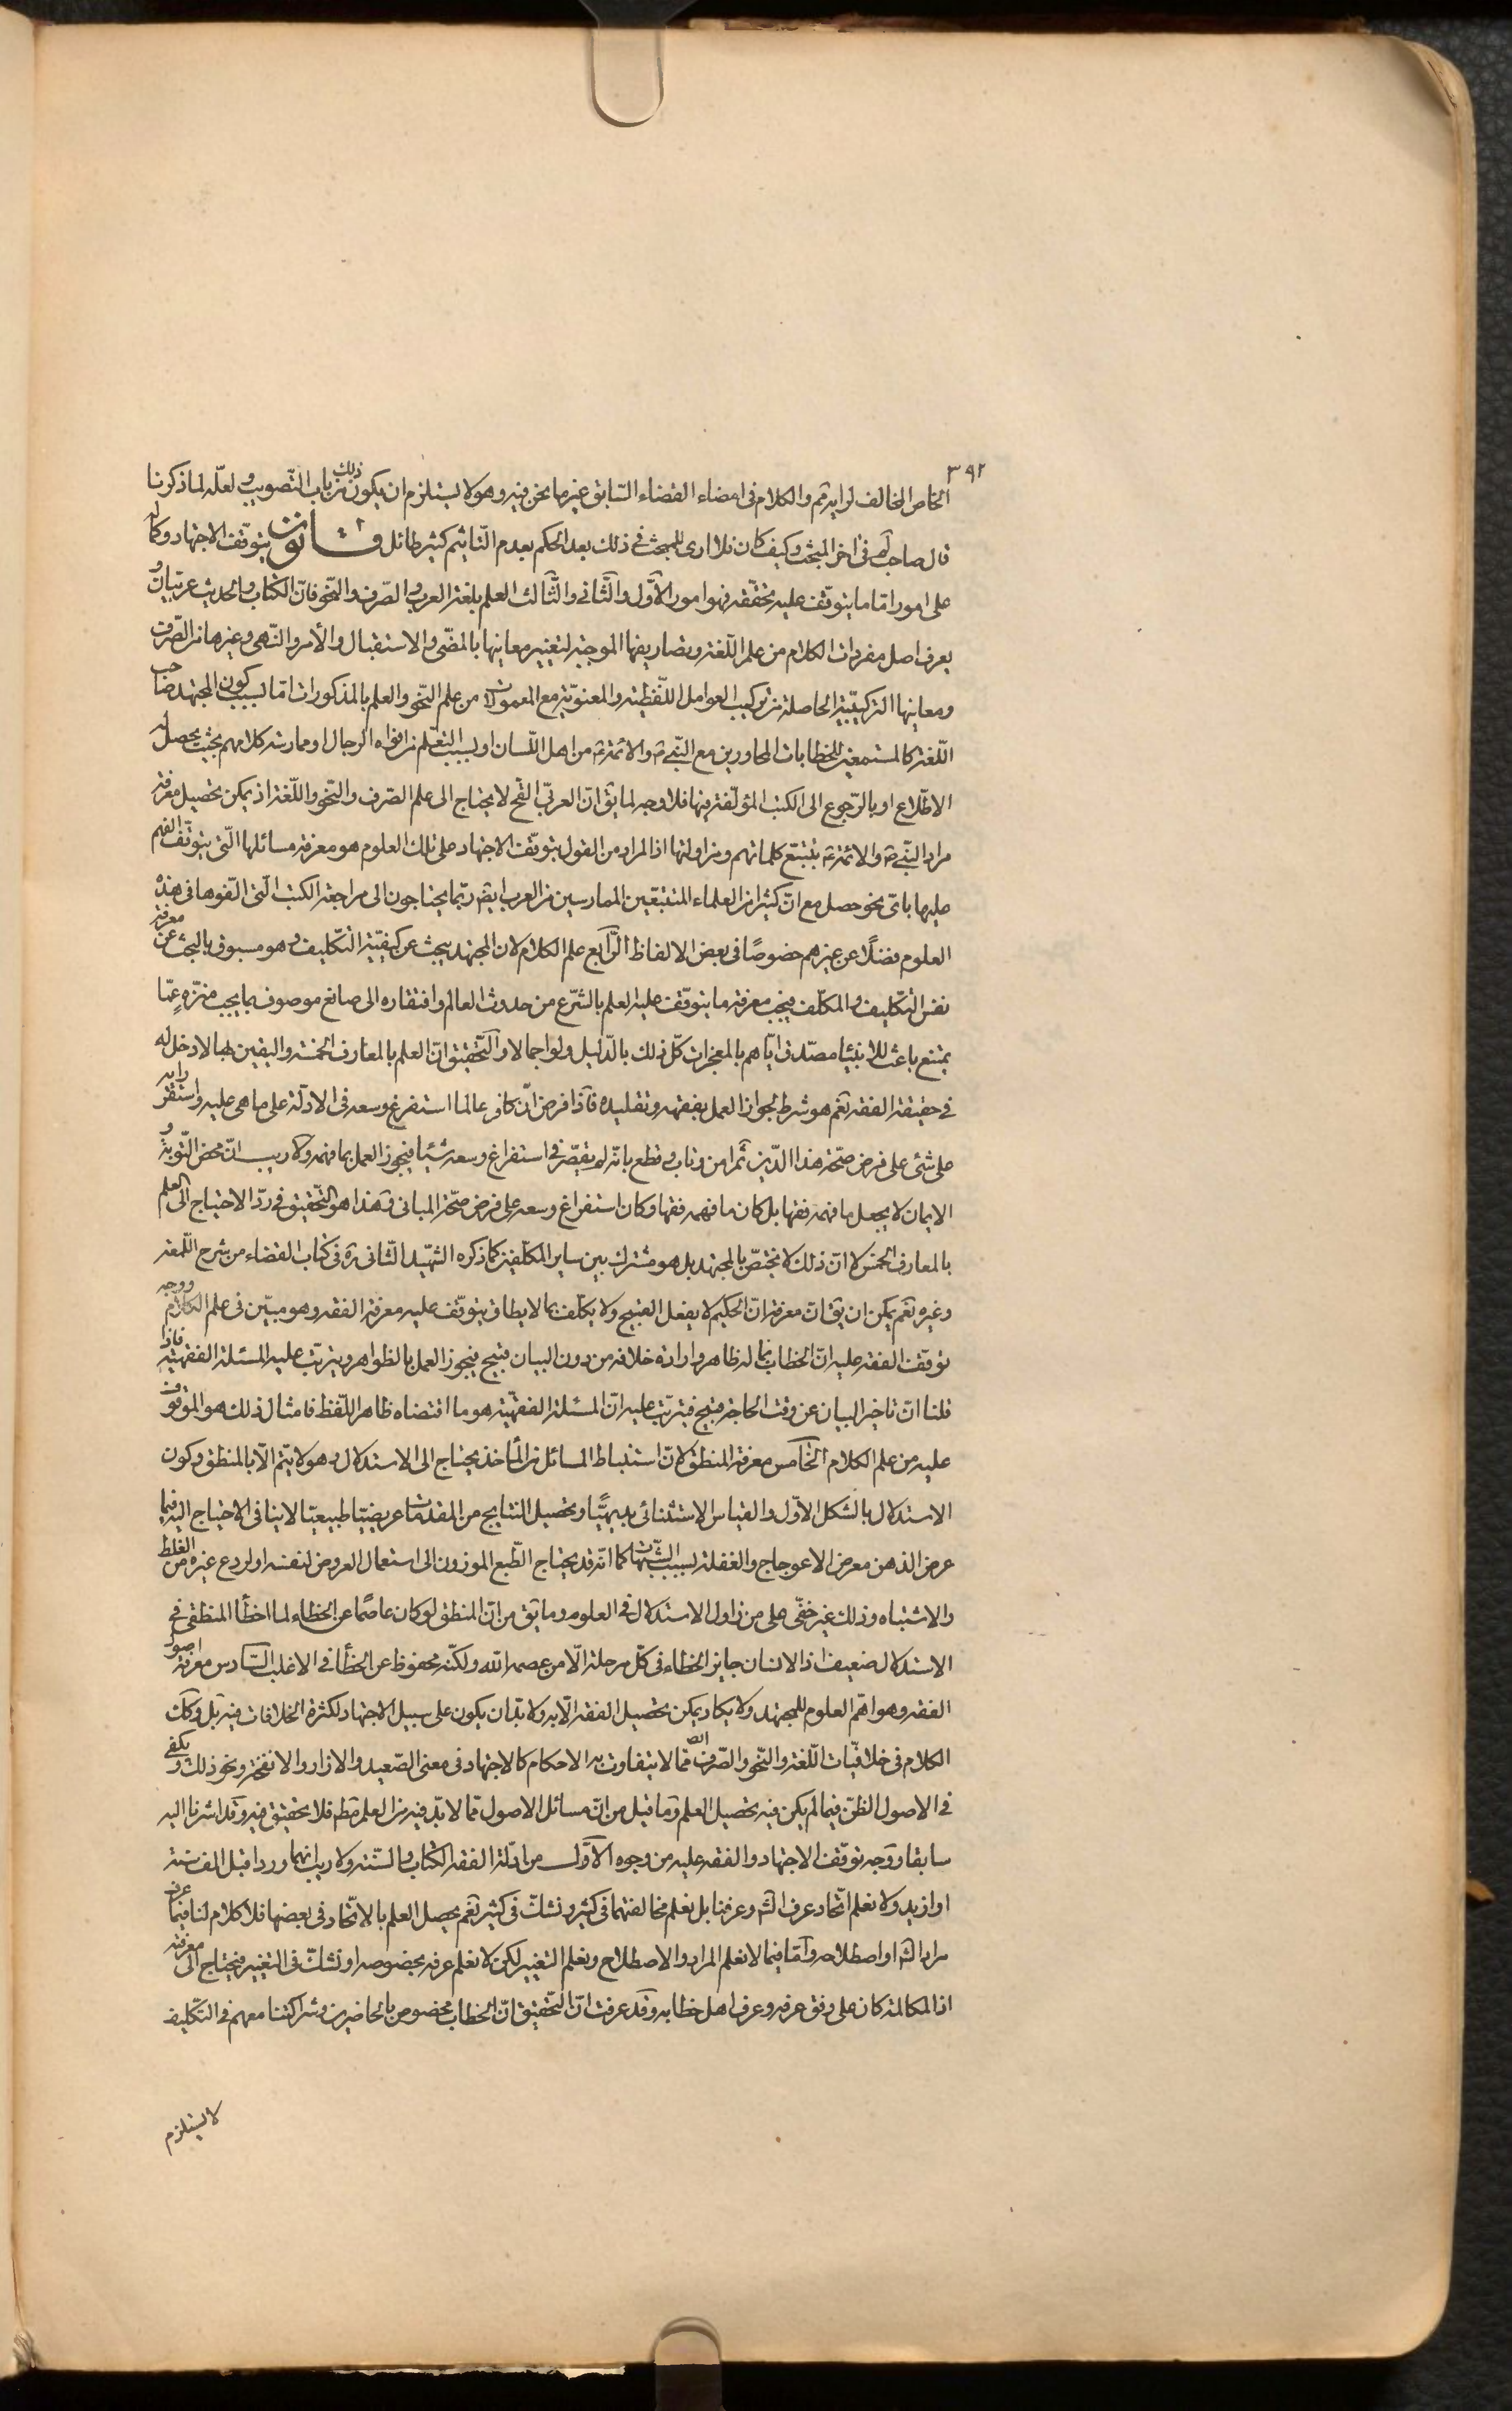 ٣٩٢
الخاص المخالف لرايه ثم والكلام فى امضاء القضاء السابق غير ما نحن فيه وهو لا يستلزم ان يكون ذلك من باب التّصويب ولعلّه لما ذكرنا
قال صاحب فى اخر المبحث وكيف كان فلا ارى للبحث فى ذلك بعد الحكم بعدم التاثيم كثير طائل قانون يتوقّف الاجتهاد وكماله
على امور امّا ما يتوقّف عليه تحقّقه فهو امور الأوّل والثّانى والثّالث العلم بلغة العرب والصّرف والنّحو فانّ الكتاب والحديث عربيّان و
يعرف اصل مفردات الكلام من علم اللّغة وتصاريفها الموجبة لتغيير معانيها بالمضىّ والاستقبال والأمر والنّهى وغيرها من الصّرف
ومعانيها التركيبيّة الحاصلة من تركيب العوامل اللّفظيّة والمعنويّة مع المعمولات من علم النّحو والعلم بالمذكورات امّا بسبب كون المجتهد صاحب
اللّغة كالمستمعين للخطابات المحاورين مع النّبى ص والائمّة ع من اهل اللّسان او بسبب التعلّم من افواه الرجال او ممارسة كلامهم بحيث يحصل له
الاطّلاع او بالرّجوع الى الكتب المؤلّفة فيها فلا وجه لما يق انّ العربىّ القح لا يحتاج الى علم الصّرف والنّحو واللّغة اذ يمكن تحصيل معرفة
مراد النّبى ص والائمّة ع بتتبّع كلماتهم ومزاولتها اذ المراد من القول بتوقّف الاجتهاد على تلك العلوم هو معرفة مسائلها الّتى يتوقّف الفهم
عليها باىّ نحو حصل مع انّ كثيرا من العلماء المتتبّعين الممارسين من العرب ايضا ربّما يحتاجون الى مراجعة الكتب الّتى الّفوها فى هذه
العلوم فضلًا عن غيرهم خصوصًا فى بعض الالفاظ الرّابع علم الكلام لان المجتهد يبحث عن كيفيّة التّكليف وهو مسبوق بالبحث عن معرفة
نفس التّكليف والمكلّف فيجب معرفة ما يتوقّف عليه العلم بالشّرع من حدوث العالم وافتقاره الى صانع موصوف بما يجب منزّه عمّا
يمتنع باعث للانبيٓا مصدّق ايّاهم بالمعجزات كلّ ذلك بالدّليل ولو اجمالا والتّحقيق انّ العلم بالمعارف الخمسة واليقين بها لا دخل له
فى حقيقة الفقه نعم هو شرط لجواز العمل بفقهه وتقليده فاذا فرض انّ كافرا عالما استفرغ وسعه فى الادلّة على ما هى عليه واستقرّ رايه
على شئ على فرض صحّة هذا الدّين ثم امن وتاب وقطع بانّه لم يقصّر فى استفراغ وسعه شيئا فيجوز العمل بما فهمه ولا ريب انّ محض التّوبة و
الايمان لا يجعل ما فهمه فقها بل كان ما فهمه فقها وكان استفراغ وسعه على فرض صحّة المبانى وهذا هو التّحقيق فى ردّ الاحتياج الى العلم
بالمعارف الخمس لا انّ ذلك لا يختصّ بالمجتهد بل هو مشترك بين ساير المكلّفين كما ذكره الشّهيد الثّانى ره فى كتاب القضاء من شرح اللّمعة
وغيره نعم يمكن ان يق انّ معرفة انّ الحكيم لا يفعل القبيح ولا يكلّف بما لا يطاق يتوقّف عليه معرفة الفقه وهو مبيّن فى علم الكلام ووجه
توقّف الفقه عليه انّ الخطاب بما له ظاهر وارادة خلافه من دون البيان قبيح فيجوز العمل بالظواهر ويترتّب عليه المسئلة الفقهيّة فاذا
قلنا انّ تاخير البيان عن وقت الحاجة قبيح فيترتّب عليه انّ المسئلة الفقهيّة هو ما اقتضاه ظاهر اللّفظ فامثال ذلك هو الموقوف
عليه من علم الكلام الخامس معرفة المنطق لانّ استنباط المسائل من المأخذ يحتاج الى الاستدلال وهو لا يتمّ الّا بالمنطق وكون
الاستدلال بالشكل الاوّل والقياس الاستثنائى بديهيًّا وتحصيل النتايج من المقدّمات غريزيّا طبيعيّا لا ينافى الاحتياج اليه فيما
عرض الذهن معرض الاعوجاج والغفلة بسبب الشّبهات كما انّه قد يحتاج الطّبع الموزون الى استعمال العروض لنفسه او لردع غيره من الغلط
والاشتباه وذلك غير خفىّ على من زاول الاستدلال فى العلوم وما يق من انّ المنطق لو كان عاصمًا عن الخطاء لما اخطأ المنطقى فى
الاستدلال ضعيف اذ الانسان جايز الخطاء فى كلّ مرحلة الّا من عصمه الله ولكنّه محفوظ عن الخطأ فى الاغلب السّادس معرفة اصول
الفقه وهو اهمّ العلوم للمجتهد ولا يكاد يمكن تحصيل الفقه الّا به ولا بدّ ان يكون على سبيل الاجتهاد لكثرة الخلافات فيه بل وكك
الكلام فى خلافيّات اللّغة والنّحو والصّرف ممّا لا يتفاوت به الاحكام كالاجتهاد فى معنى الصّعيد والازار والانفحة ونحو ذلك ويكفى
فى الاصول الظنّ فيما لم يكن فيه تحصيل العلم وما قيل من انّ مسائل الاصول ممّا لا بدّ فيه من العلم فلا تحقيق فيه وقد اشرنا اليه
سابقا ووجه توقّف الاجتهاد والفقه عليه من وجوه الأوّل من ادلّة الفقه الكتاب والسّنّة ولا ريب انهما وردا قبل الف سنة
او ازيد ولا نعلم اتّحاد عرف الش وعرفنا بل نعلم مخالفتهما فى كثير ونشكّ فى كثير نعم يحصل العلم بالاتّحاد فى بعضها فلا كلام لنا فيما عرف
مراد الش او اصطلاحه وامّا فيما لا نعلم المراد والاصطلاح ونعلم التغيير لكن لا نعلم عرفه بخصوصه او نشكّ فى التغيير فيحتاج الى معرفته
اذ المكالمة كان على وفق عرفه وعرف اهل خطابه وقد عرفت انّ التّحقيق انّ الخطاب مخصوص بالحاضرين وشراكتنا معهم فى التّكليف
لا يستلزم